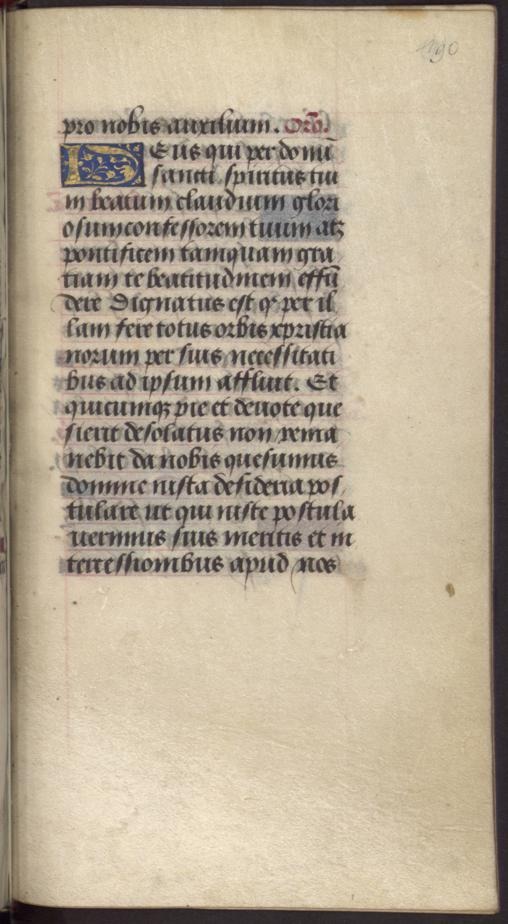 190
pro nobis auxilium. Orō.
Deus qui per donū
sancti spiritus tui
in beatum claudium glori
osum confessorem tuum atqꝫ
pontificem tamquam gra
tiam te beatitudinem effū
dere dignatus est qꝫ per il
lam fere totus orbis xpristia
norum per suis necessitati
bus ad ipsum affluit. Et
quicumqꝫ pie et deuote que
sierit desolatus non rema
nebit da nobis quesumus
domine iusta desideria pos
tulare ut qui iuste postula
uerimus suis meritis et in
tercessionibus apud nos